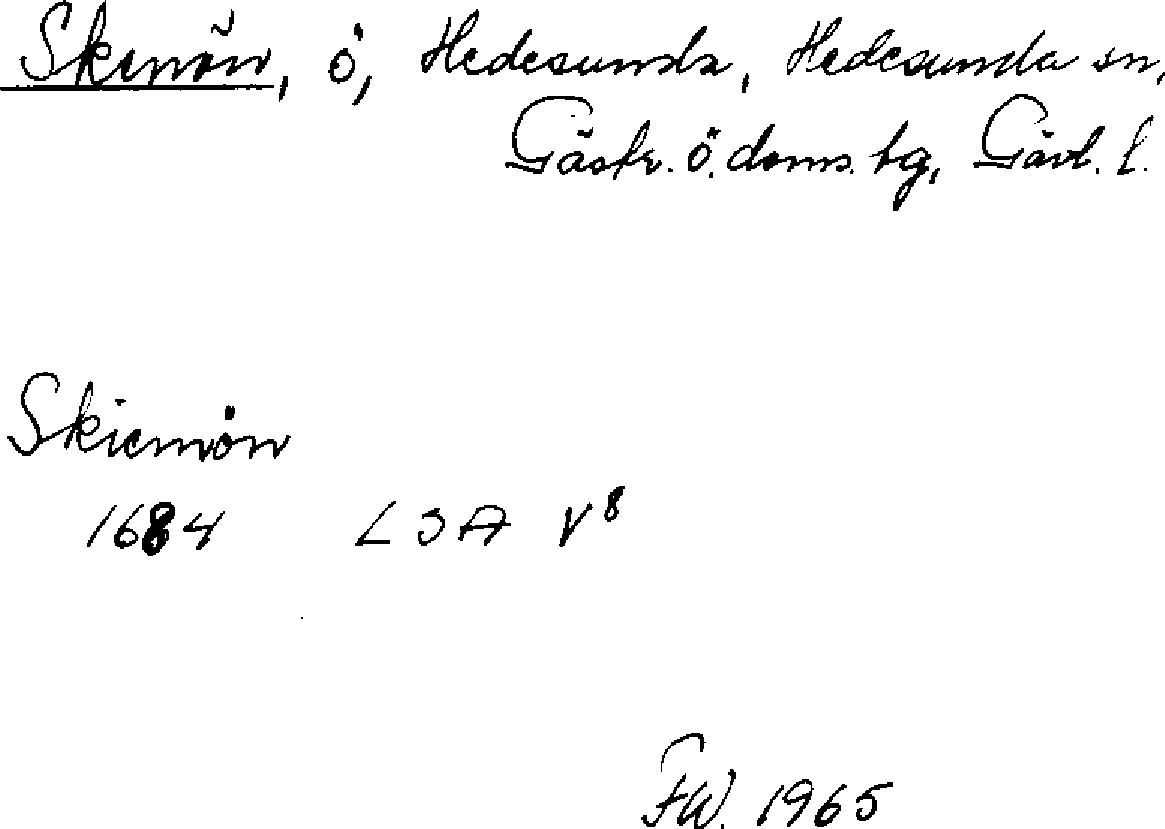 Skenön, ö, Hedesunda, Hedesunda sn,
Gästr. ö. doms. tg, Gävl. l.
Skienön
1684 LSA V⁸
FW. 1965